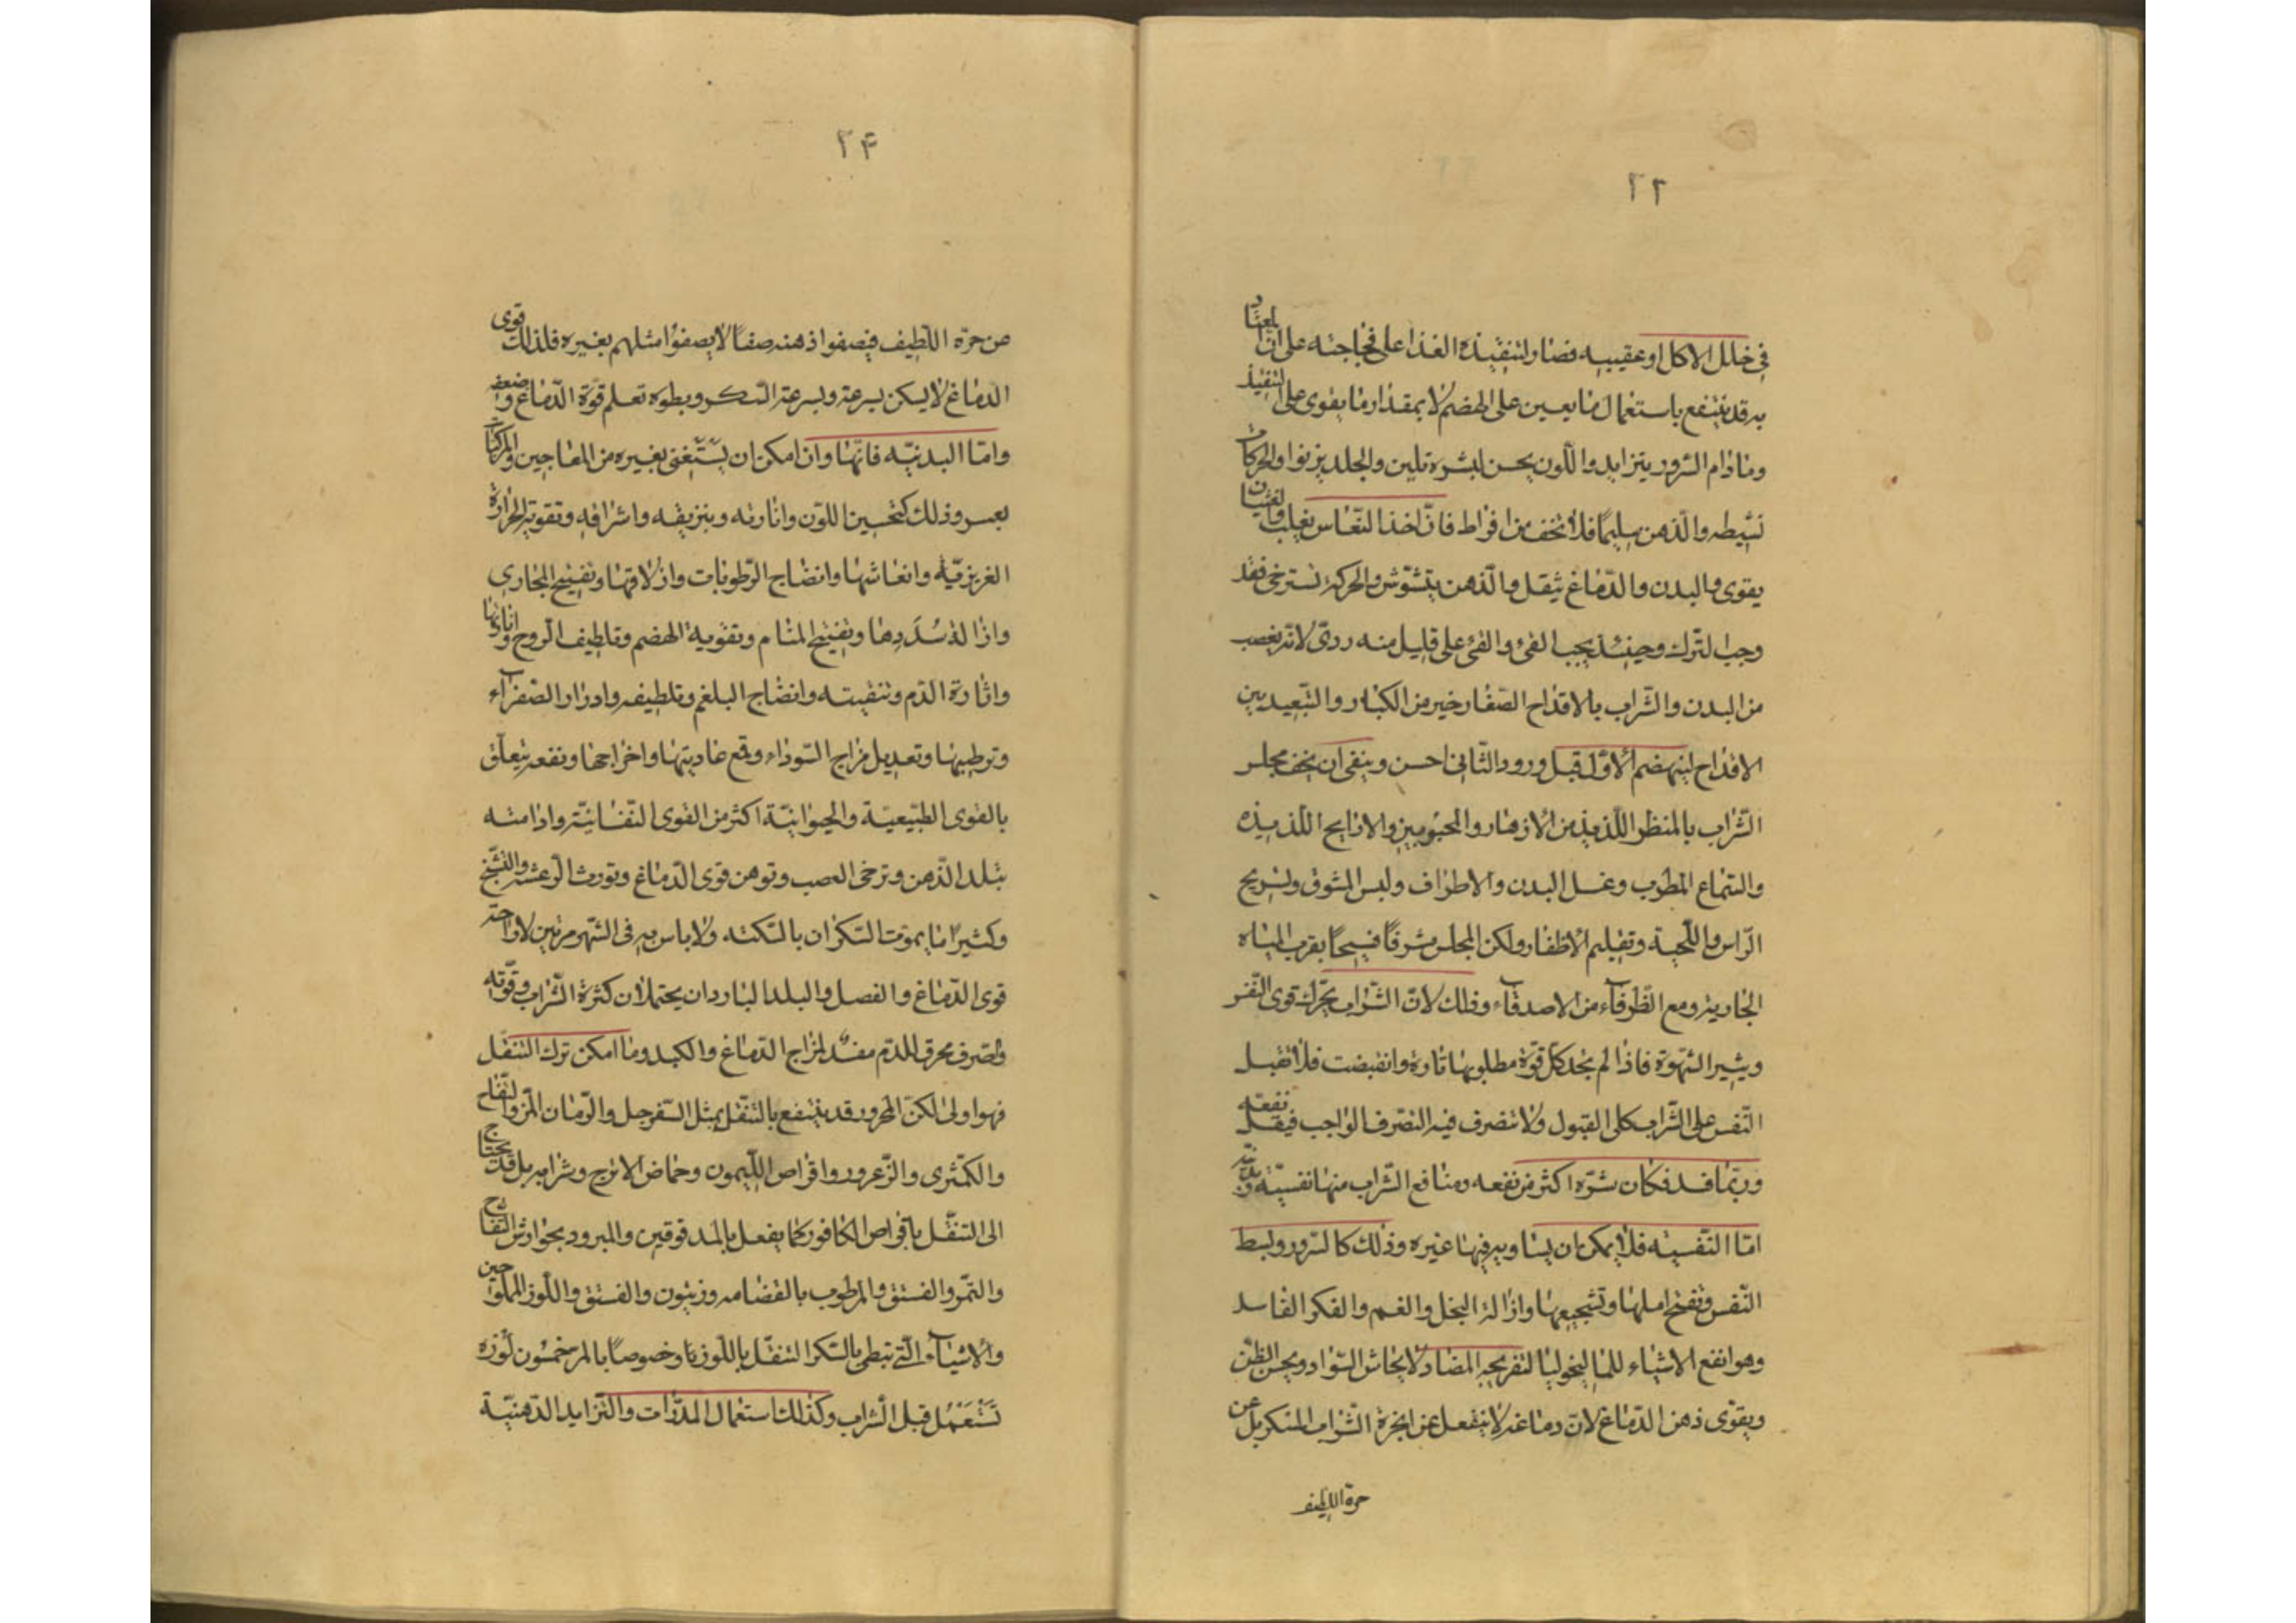 ٢٣
في خلل الاكل او عقيبه فضار لتنفيذه الغذا على فجاجته على ان المعتاد
به قد ينتفع باستعمال ما يعين على الهضم لا بمقدار ما يقوى على التنفيذ
وما دام السرور يتزايد واللون يحسن البشره تلين والجلد يزبوا والحركات
نشيطه والذهن سليما فلا تخف من افراط فان اخذ النعاس يغلب والغثيان
يقوى والبدن والدماغ يثقل والذهن يتشوش والحركة تسترخى فقد
وجب الترك وحينئذ يجب القئ والقئ على قليل منه ردى لانه يغصب
من البدن والشراب بالاقداح الصغار خير من الكبار والتبعيد بين
الاقداح لينهضم الاول قبل ورود الثانى احسن وينبغى ان يحف مجلس
الشراب بالمنظر اللذيذ من الازهار والمحبوبين والارايح اللذيذه
والسماع المطرب وغسل البدن والاطراف ولبس المشوق وتسريح
الراس واللحية وتقليم الاظفار ولكن المجلس مشرفا فسيحا بقرب المياه
الجاريه ومع الظرفآء من الاصدقآء وذلك لان الشراب يحرك قوى النفس
ويثير الشهوة فاذا لم يجد كل قوة مطلوبها تاره وانقبضت فلا تقبل
النفس على الشراب كلى القبول ولا تتصرف فيه التصرف الواجب فيقل نفعه
وربما فسد فكان شره اكثر من نفعه ومنافع الشراب منها نفسية وبدنية
اما النفسيه فلا يمكن ان يساويه فيها غيره وذلك كالسرور وبسط
النفس وتفسح املها وتشجيعها وازالة البخل والغم والفكر الفاسد
وهو انفع الاشياء للماليخوليا لتفريحه المضاد لايحاش السواد ويحسن الظن
ويقوى ذهن الدماغ لان دماغه لا ينفعل عن ابخرة الشراب المسكر بل عن
حرة اللطيف
٢۴
من حرة اللطيف فيصفوا ذهنه صفآ لا يصفوا مثلهم بغيره فلذلك قوى
الدماغ لا يسكن بسرعة وبسرعة السكر وبطوه تعلم قوة الدماغ وضعفه
واما البدنيه فانها وان امكن ان يستغنى بغيره من المعاجين والمركبات
بعسر وذلك كتحسين اللون وانارته وبنزيقه واشراقه وتقويته الحرارة
الغريزية وانعاشها وانضاج الرطوبات وازلاقها وتفتيح المجارى
وازالة سددها وتفتيح المسام وتقوية الهضم وتلطيف الروح وانارتها
واثارة الدم وتنقيته وانضاج البلغم وتلطيفه وادرار الصفرآء
وترطيبها وتعديل مزاج السوداء وقمع عاديتها واخراجها ونفعه يتعلق
بالقوى الطبيعية والحيوانية اكثر من القوى النفسانية وادامته
تبلد الذهن وترخى العصب وتوهن قوى الدماغ وتورث الرعشه والتشنج
وكثيرا ما يموت السكران بالسكته ولا باس به فى الشهر مرتين لاواحة
قوى الدماغ والفصل والبلد الباردان يحتملان كثرة الشراب وقوته
وصرف محرق للدم مفسد لمزاج الدماغ والكبد وما امكن ترك التنقل
فهو اولى لكن المحرور قد ينتفع بالتنقل بمثل السفرجل والرمان المز والتفاح
والكمثرى والزعرور واقراص الليمون وحماض الاترج وشرابه بل قد يحتاج
الى التنقل باقراص الكافور كما يفعل بالمدقوقين والمبرود بجوارش التفاح
والتمر والفستق والمرطوب بالقضامه وزيتون والفستق واللوز المملوحين
والاشيآء التى تبطى بالسكر التنقل باللوز با وخصوصا بالمر خمسون لوزه
تستعمل قبل الشراب وكذلك استعمال المدرات والثرايد الدهنية